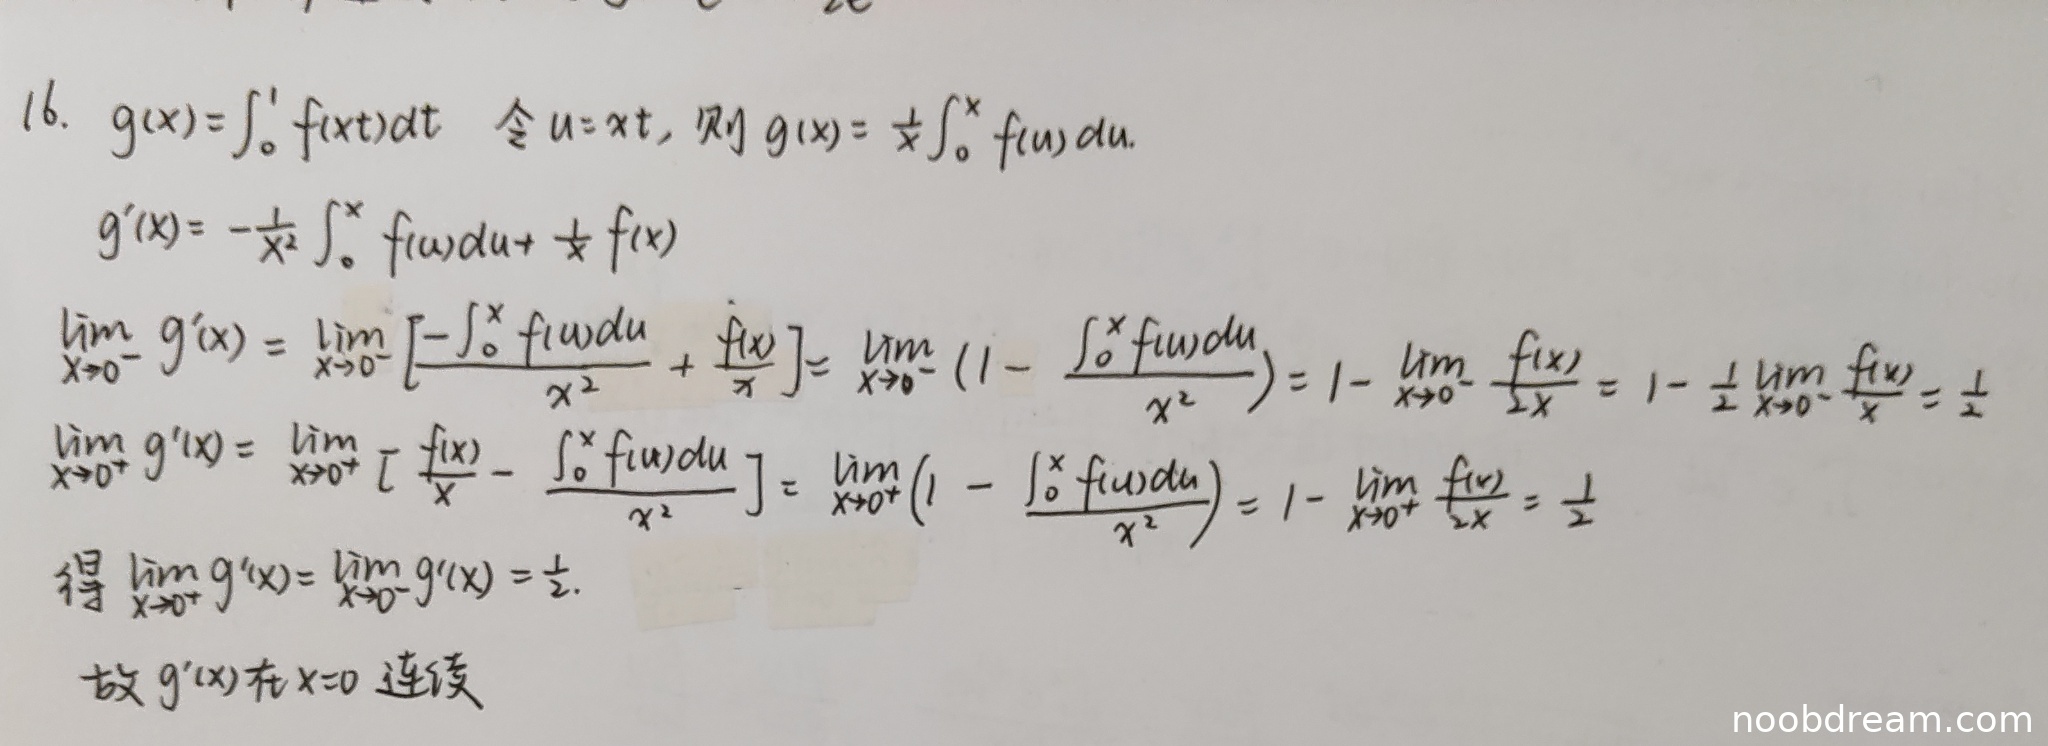 16. g(x)=∫₀¹ f(xt)dt 令u=xt, 则 g(x)= 1/x ∫₀ˣ f(u)du.
g′(x)= -1/x² ∫₀ˣ f(u)du + 1/x f(x)
lim_{x→0⁻} g′(x) = lim_{x→0⁻} [ -∫₀ˣ f(u)du / x² + f(x)/x ] = lim_{x→0⁻} (1 - ∫₀ˣ f(u)du / x²) = 1 - lim_{x→0⁻} f(x)/2x = 1 - 1/2 lim_{x→0⁻} f(x)/x = 1/2
lim_{x→0⁺} g′(x) = lim_{x→0⁺} [ f(x)/x - ∫₀ˣ f(u)du / x² ] = lim_{x→0⁺} (1 - ∫₀ˣ f(u)du / x²) = 1 - lim_{x→0⁺} f(x)/2x = 1/2
得 lim_{x→0⁺} g′(x) = lim_{x→0⁻} g′(x) = 1/2.
故 g′(x) 在 x=0 连续
noobdream.com